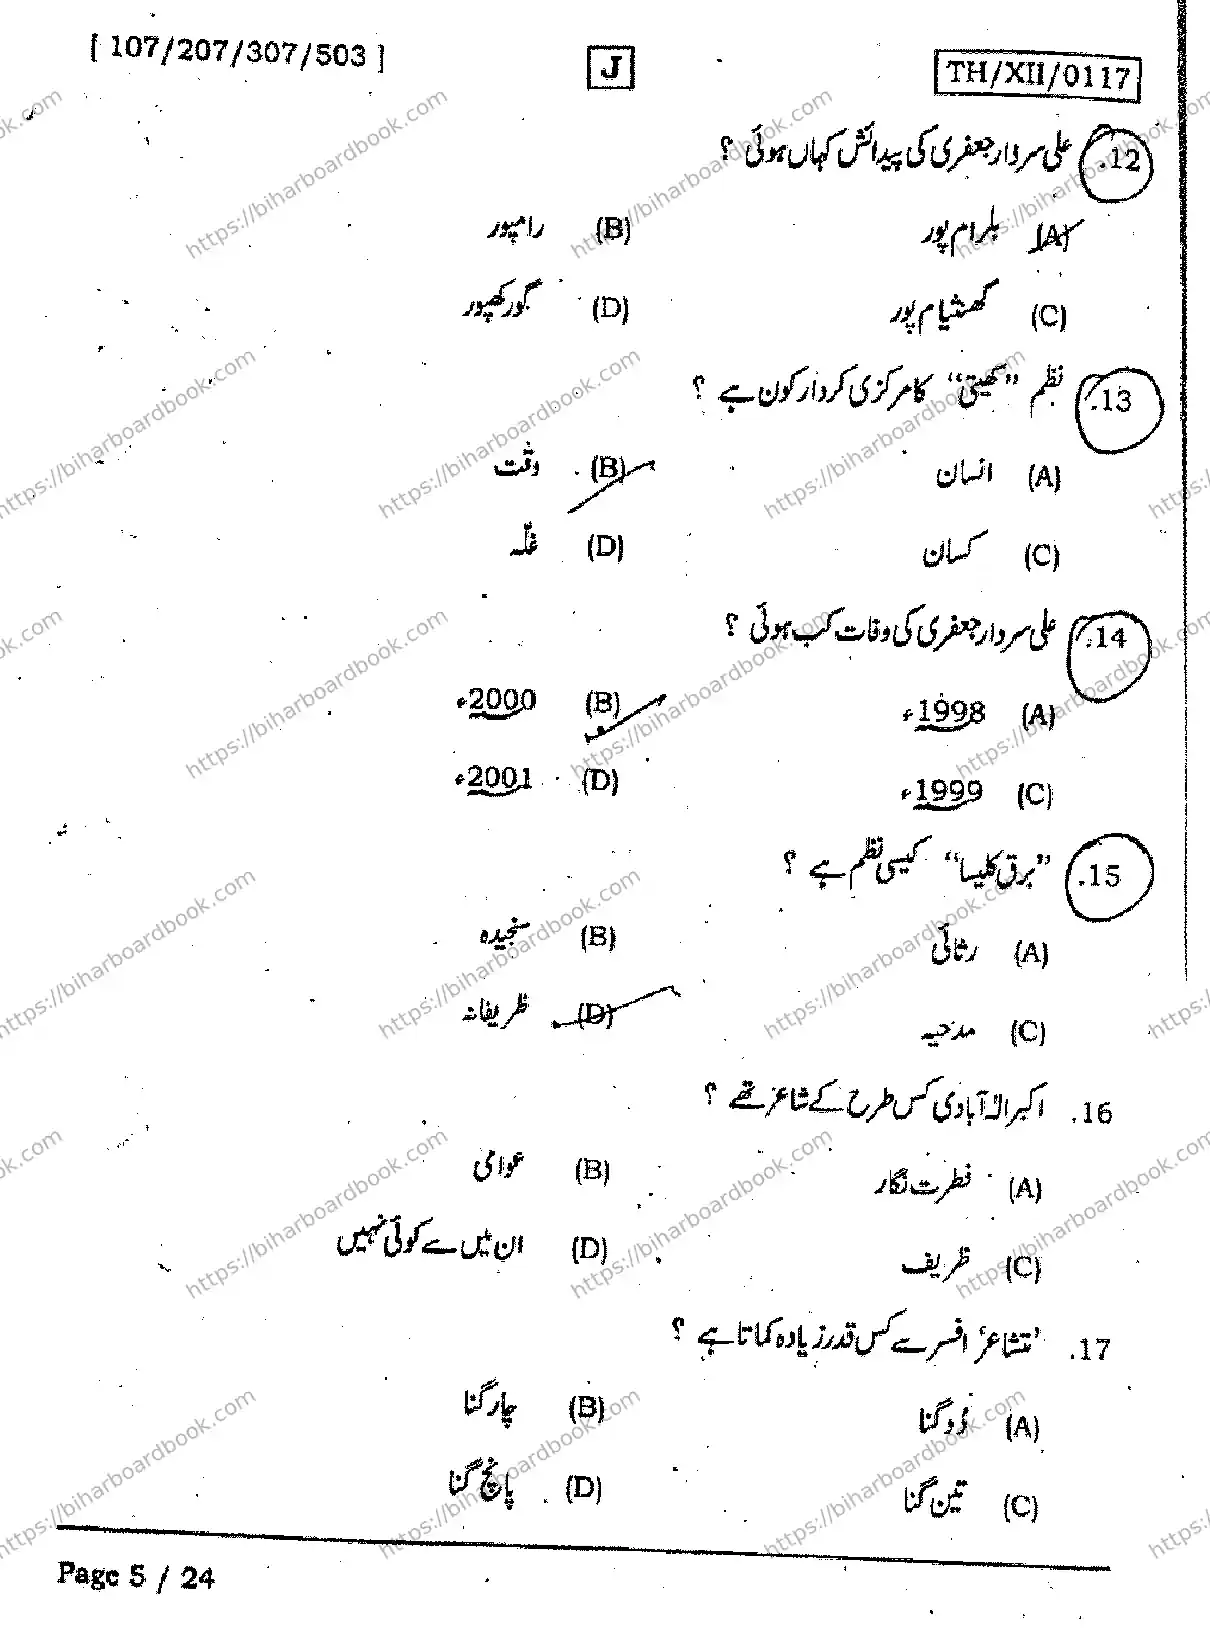 [ 107/207/307/503 ] J TH/XII/0117
12. علی سردار جعفری کی پیدائش کہاں ہوئی ؟
(A) بلرام پور (B) رامپور
(C) گھنشیام پور (D) گورکھپور
13. نظم ”کھیتی“ کا مرکزی کردار کون ہے ؟
(A) انسان (B) وقت
(C) کسان (D) غلّہ
14. علی سردار جعفری کی وفات کب ہوئی ؟
(A) 1998ء (B) 2000ء
(C) 1999ء (D) 2001ء
15. ”برق کلیسا“ کیسی نظم ہے ؟
(A) رثائی (B) سنجیدہ
(C) مدحیہ (D) ظریفانہ
16. اکبر الہٰ آبادی کس طرح کے شاعر تھے ؟
(A) فطرت نگار (B) عوامی
(C) ظریف (D) ان میں سے کوئی نہیں
17. ’تشاعر‘ افسر سے کس قدر زیادہ کماتا ہے ؟
(A) دو گنا (B) چار گنا
(C) تین گنا (D) پانچ گنا
Page 5 / 24
https://biharboardbook.com